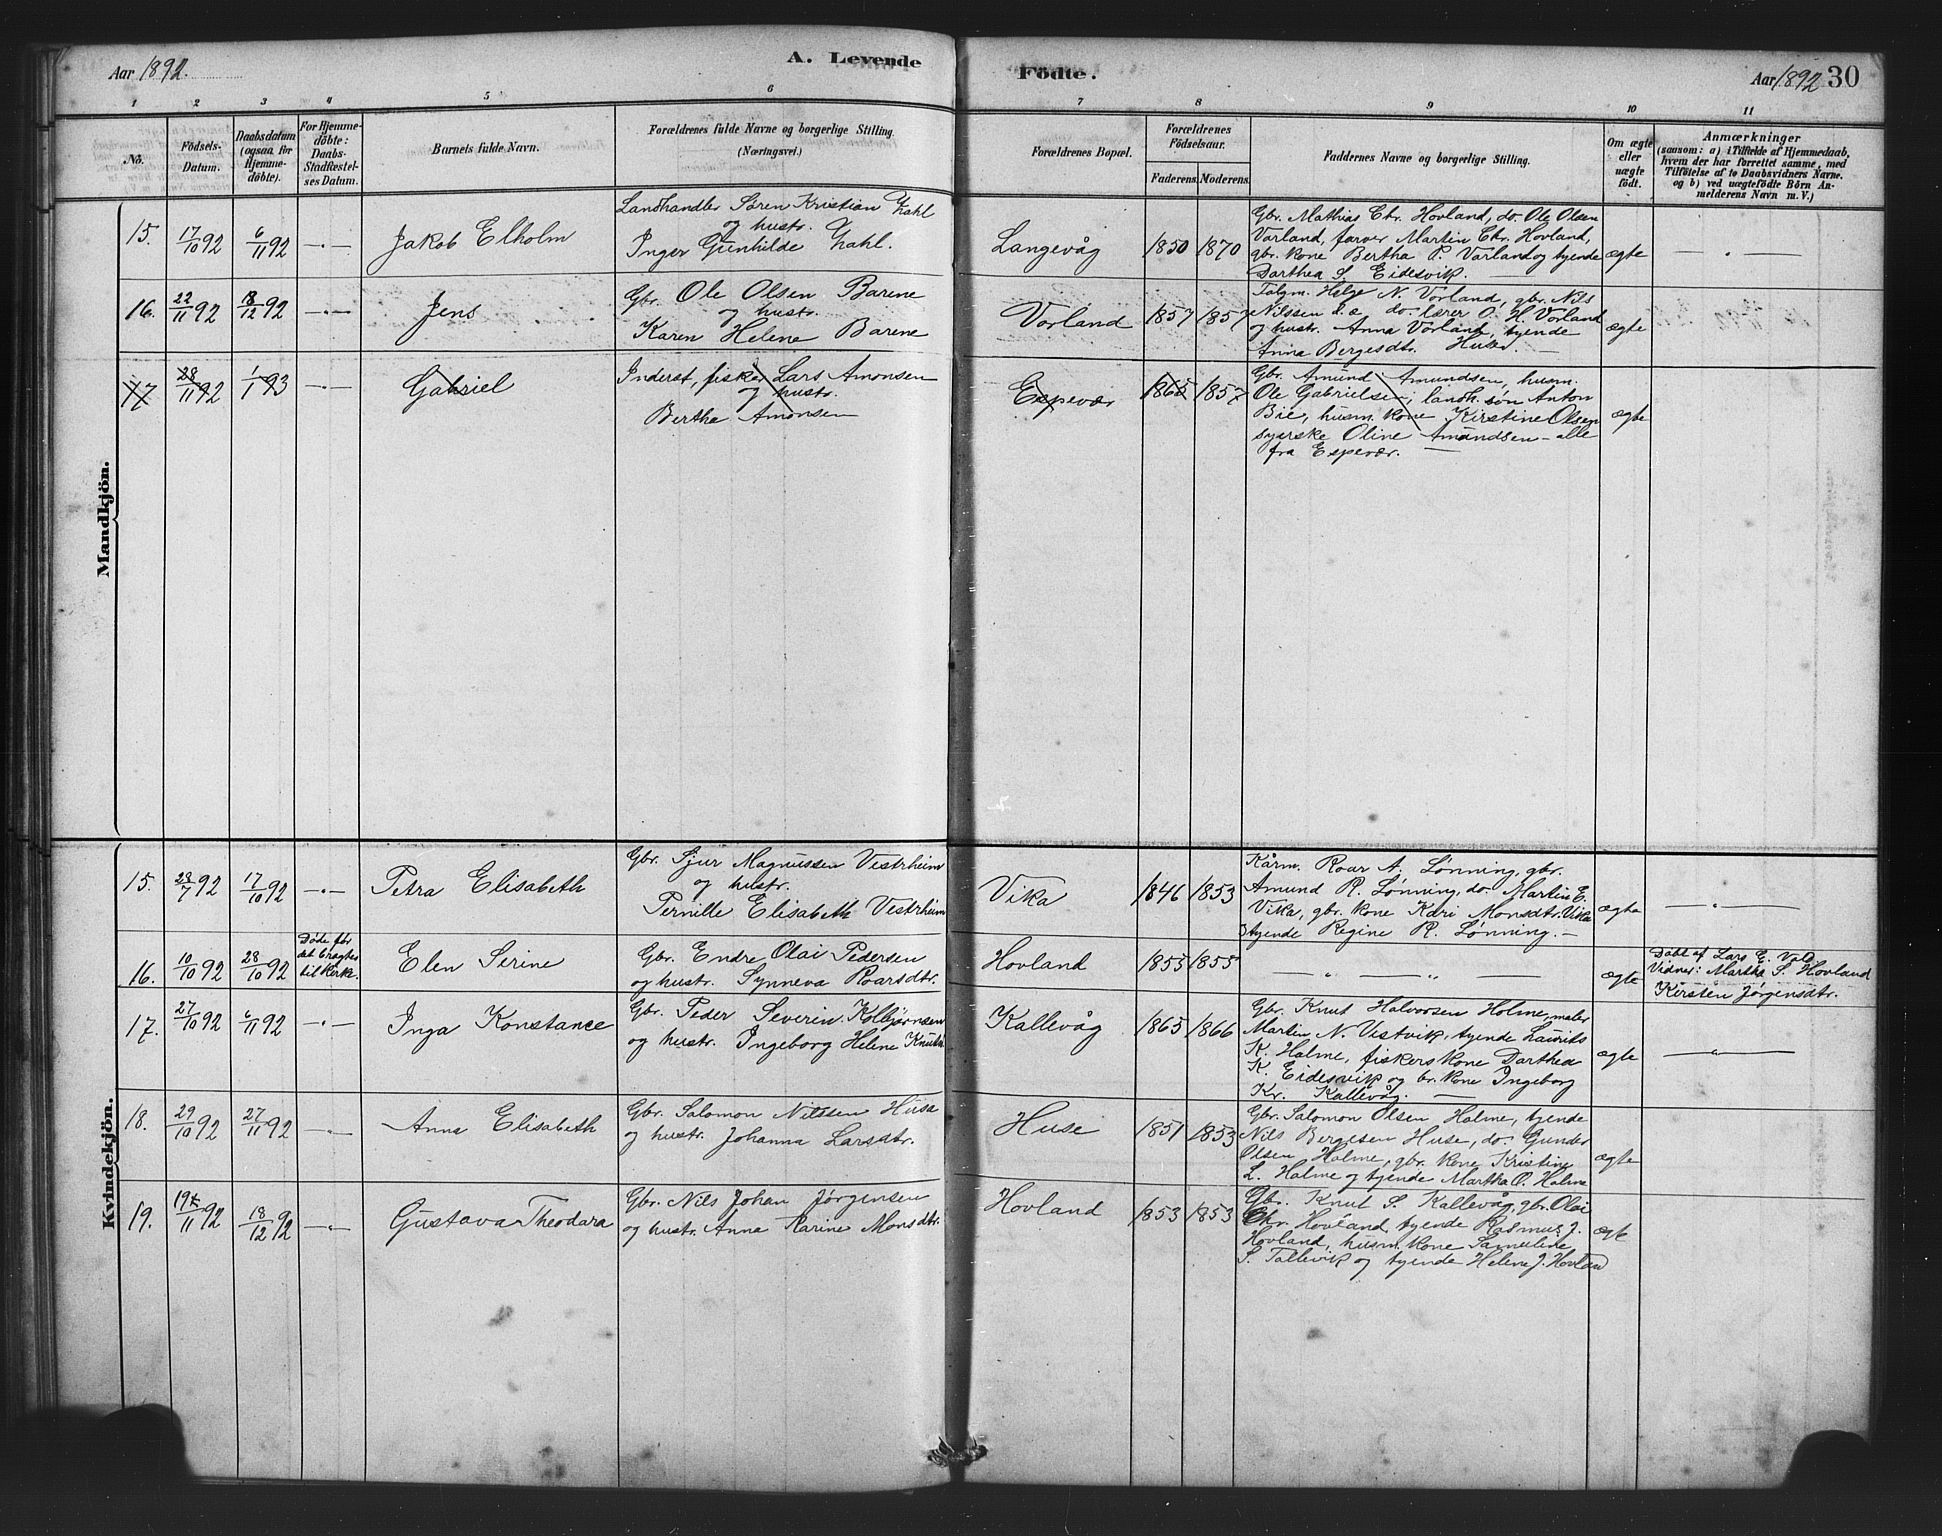 Aar 1892.
A. Levende
Födte.
Aar 1892 30
1 2 3 4 5 6 7 8 9 10 11
No.
Födsels-
Datum.
Daabsdatum
(ogsaa for
Hjemme-
döbte).
For Hjemme-
döbte:
Daabs-
Stadfæstel-
ses Datum.
Barnets fulde Navn.
Forældrenes fulde Navne og borgerlige Stilling.
(Næringsvei.)
Forældrenes Bopæl.
Forældrenes
Födselsaar.
Faderens. Moderens.
Faddernes Navne og borgerlige Stilling.
Om ægte
eller
uægte
födt.
Anmærkninger
(saasom: a) i Tilfælde af Hjemmedaab,
hvem der har forrettet samme, med
Tilföielse af to Daabsvidners Navne.
og b) ved uægtefödte Börn An-
melderens Navn m. V.)
Mandkjön.
15. 17/10 92 6/11 92 —"— Jakob Elholm
Landhandler Søren Kristian Zahl
og hustr.
Inger Gunhilde Zahl.
Langevåg 1850 1870
Gbr. Mathias Chr. Hovland, do Ole Olsen
Vorland, farver Martin Chr. Hovland,
gbr. kone Bertha P. Vorland og tyende
Darthea S. Eidesvik.
ægte — " —
16. 22/11 92 18/12 92 —"— Jens
Gbr. Ole Olsen Barene
og hustr.
Karen Helene Barene
Vorland 1857 1857
Tolgm. Helge N. Vorland, gbr. Nils
Nilssen s. s. do. lærer O. H. Vorland
og hustr. Anna Vorland, tyende
Anna Bergesdtr. Huse. —
ægte
17 28/11 92 1/1 93 —"— Gabriel
Inderst, fisker Lars Amonsen
og hustr.
Bertha Amonsen
Espevær 1865 1857
Gbr. Amund Amundsen, husm.
Ole Gabrielsen, landh. søn Anton
Bie, husm. kone Kirstine Olsen
syerske Oline Amundsen – alle
fra Espevær. —
ægte
Kvindekjön.
15. 23/7 92 17/10 92 —"— Petra Elisabeth
Gbr. Sjur Magnussen Vestrheim
og hustr.
Pernille Elisabeth Vestrheim
Vika 1846 1853
Kårm. Roar A. Lønning, gbr.
Amund R. Lønning, do Martin E.
Vika, gbr. kone Kari Monsdtr. Vika
tyende Regine R. Lønning. —
ægte — " —
16. 10/10 92 28/10 92
Døde før
det bragtes
til kirke.
Elen Serine
Gbr. Endre Olai Pedersen
og hustr. Synneva Roarsdtr.
Hovland 1855 1855 — " — " —
ægte
Døbt af Lars E. Vold
Vidner: Martha S. Hovland
Kirsten Jørgensdtr.
17. 27/10 92 6/11 92 —"— Inga Konstance
Gbr. Peder Severin Kolbjørnsen
og hustr. Ingeborg Helene Knutsd
Kallevåg 1865 1866
Gbr. Knut Halvorsen Holme, maler
Martin N. Vestvik, tyende Laurits
K. Holme, fiskers kone Darthea
K. Eidesvik og br. kone Ingeborg
Kr. Kallevåg. —
ægte — " —
18. 29/10 92 27/11 92 —"— Anna Elisabeth
Gbr. Salomon Nilssen Huse
og hustr. Johanna Larsdtr.
Huse 1851 1853
Gbr. Salomon Olsen Holme, tyende
Nils Bergesen Huse, do Gunder
Olsen Holme, gbr. kone Kristine
L. Holme og tyende Martha O. Holme
ægte
19. 19/11 92 18/12 92 —"— Gustava Theodora
Gbr. Nils Johan Jørgensen
og hustr. Anna Karine Monsdtr.
Hovland 1853 1853
Gbr. Knut S. Kallevåg, gbr. Olai
Chr. Hovland, tyende Rasmus J.
Hovland, husm. kone Samuline
S. Tallevik og tyende Helene J. Hovland
ægte